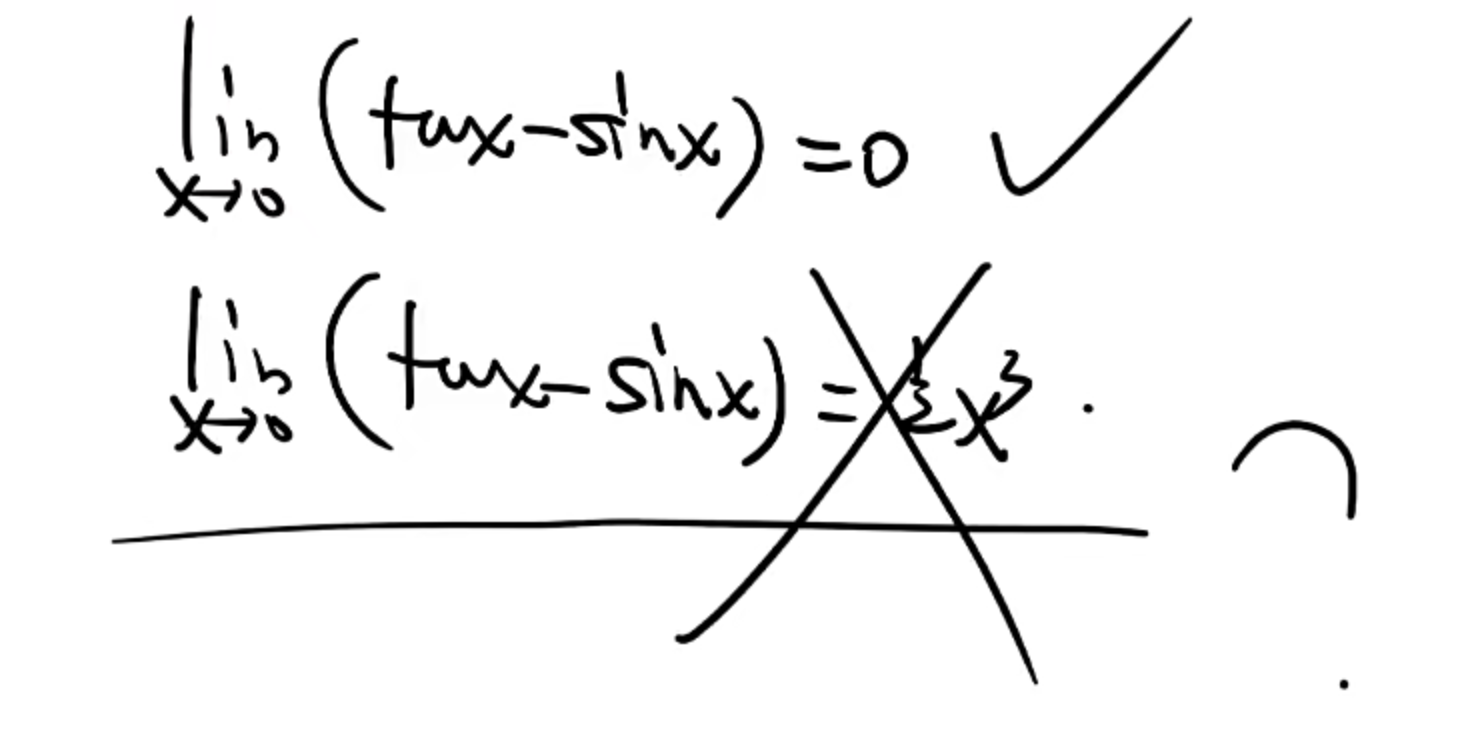 lim x→0 (tanx-sinx) = 0 ✓
lim x→0 (tanx-sinx) = ½x³.